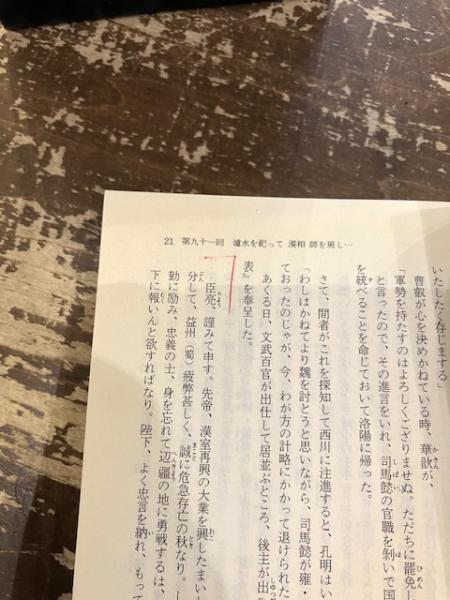 21 第九十一回 瀘水を祀って 漢相 師を班し…
いたしたく存じまする」
曹叡が心を決めかねている時、華歆が、
「軍勢を持たすのはよろしくござりませぬ。ただちに罷免し
と言ったので、その進言をいれ、司馬懿の官職を剝いで国
を統べることを命じておいて洛陽に帰った。
さて、間者がこれを探知して西川に注進すると、孔明はい
「わしはかねてより魏を討とうと思いながら、司馬懿が雍・
ておったのじゃが、今、わが方の計略にかかって退けられた
あくる日、文武百官が出仕して居並ぶところ、後主が出
表』を奉呈した。
臣亮、謹みて申す。先帝、漢室再興の大業を興したまい
分して、益州(蜀)疲弊甚しく、誠に危急存亡の秋なり。し
勤に励み、忠義の士、身を忘れて辺疆の地に勇戦するは、
下に報いんと欲すればなり。陛下、よく忠言を納れ、もって